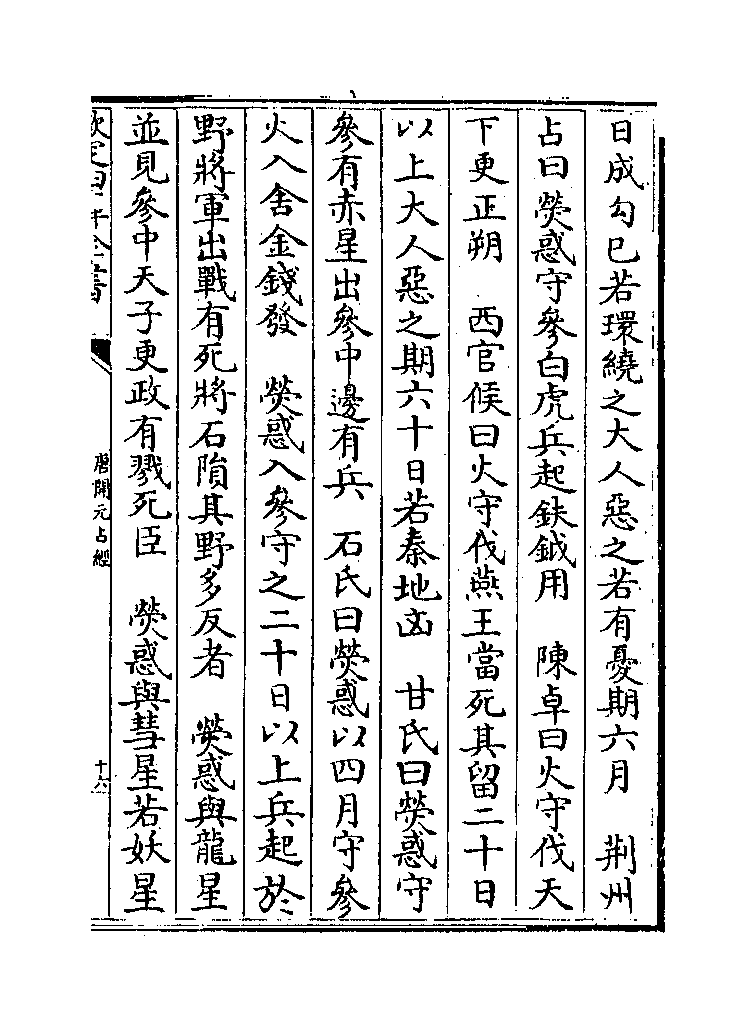 日成勾巳若環繞之大人惡之若有憂期六月　荆州
占曰熒惑守參白虎兵起鈇鉞用　陳卓曰火守伐天
下更正朔　西官候曰火守伐燕王當死其留二十日
以上大人惡之期六十日若秦地凶　甘氏曰熒惑守
參有赤星出參中邊有兵　石氏曰熒惑以四月守參
火入舍金錢發　熒惑入參守之二十日以上兵起於
野將軍出戰有死將石隕其野多反者　熒惑與龍星
並見參中天子更政有戮死臣　熒惑與彗星若妖星
欽定四庫全書
唐開元占經
十六